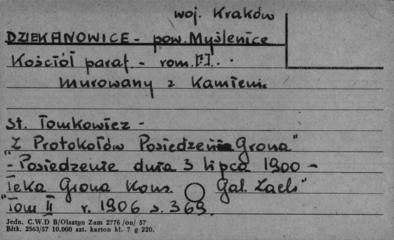 woj. Kraków
DZIEKANOWICE - pow. Myślenice
Kościół paraf - rom. [?].
murowany z Kamieni
St. Tomkowicz -
"Z Protokołów Posiedzenia Grona"
"- Posiedzenie dnia 3 lipca 1900 -
Teka Grona Kons. Gal. Zach"
"Tom II r. 1906 s. 369.
Jedn. C.W.D B/Olsztyn Zam 2776 /on/ 57
Bltk. 2563/57 10.000 szt. karton kl. 7 g 220.